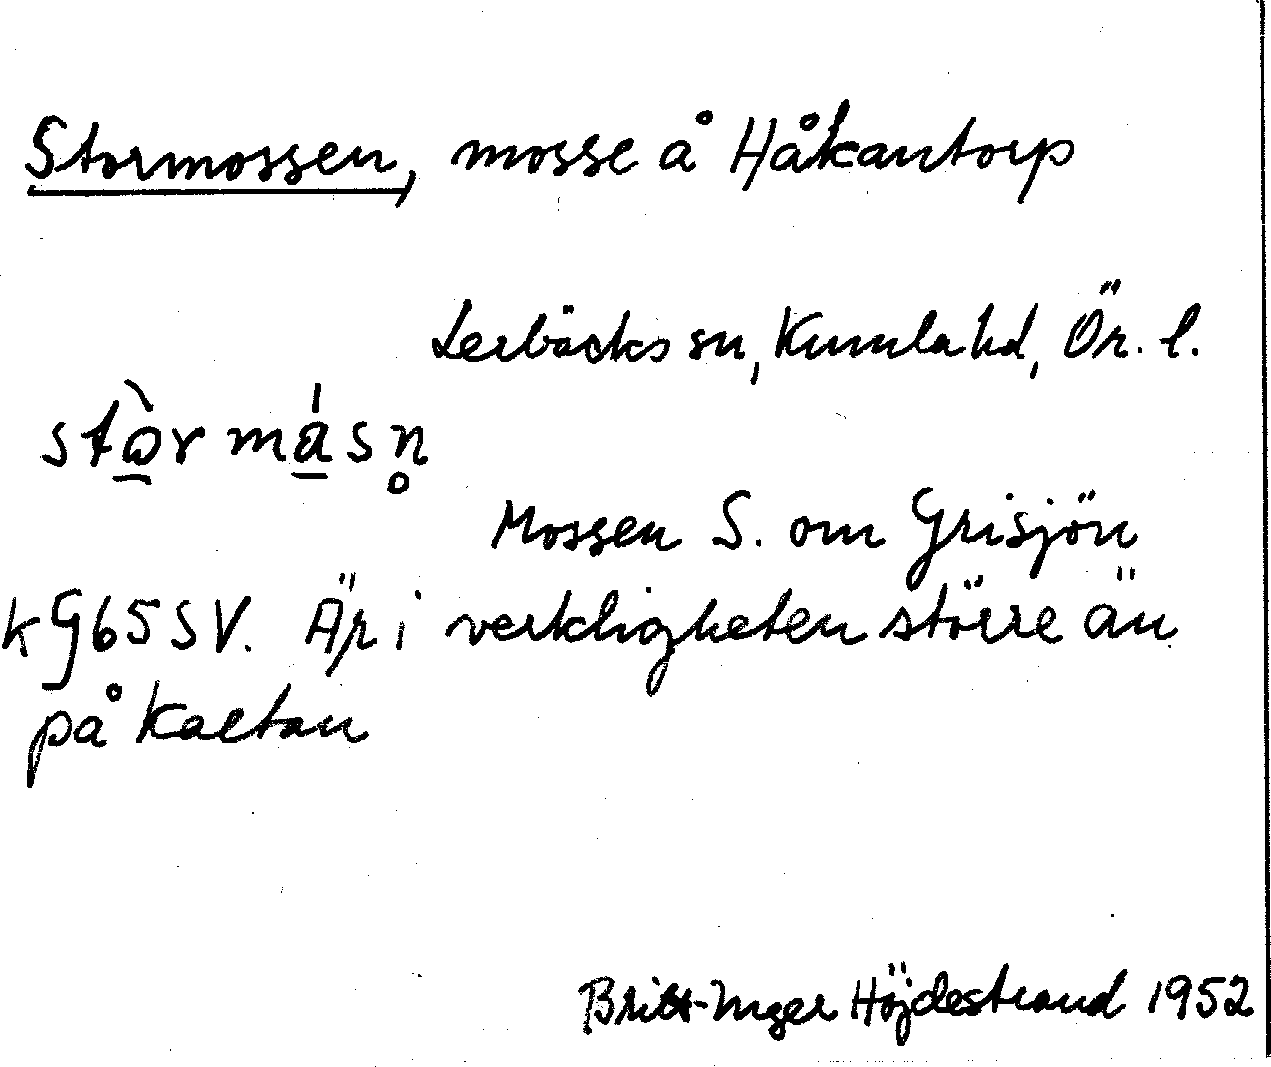 Stormossen, mosse å Håkantorp
Lerbäcks sn, Kumla hd, Ör. l.
stòrmásn̥
Mossen S. om Grisjön
kG65SV. Är i verkligheten större än
på kartan
Britt-Inger Höjdestrand 1952